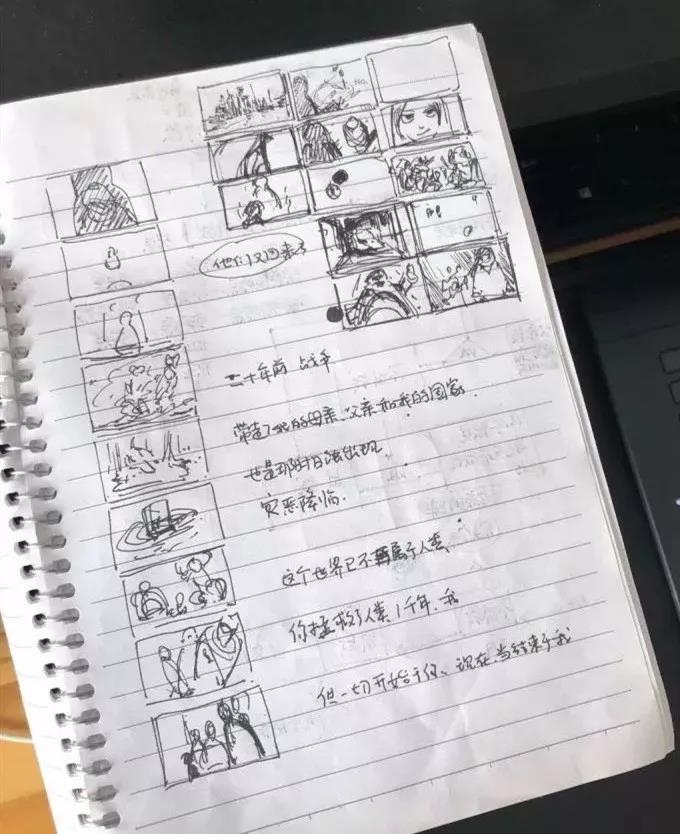 他们又回来了
二十年前 战争
带走了我的母亲、父亲和我的国家.
也是那时日法出现.
灾恶降临.
这个世界已不再属于人类.
你拯救了人类1个年.我
但一切开始于你、现在.当结束于我